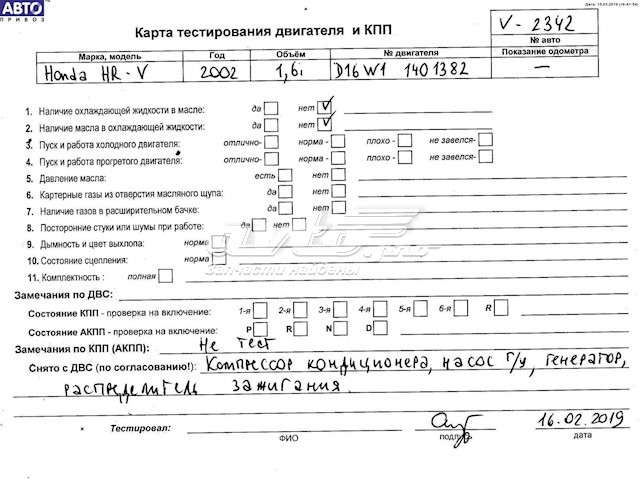 АВТО
ПРИВОЗ
Дата: 15.03.2019 (16:41:54)
Карта тестирования двигателя и КПП
V - 2342
№ авто
Марка, модель Год Объём № двигателя Показание одометра
Honda HR-V 2002 1,6i D16W1 1401382 —
1. Наличие охлаждающей жидкости в масле: да нет V
2. Наличие масла в охлаждающей жидкости: да нет V
3. Пуск и работа холодного двигателя: отлично- норма - плохо - не завелся-
4. Пуск и работа прогретого двигателя: отлично- норма - плохо - не завелся-
5. Давление масла: есть нет
6. Картерные газы из отверстия масляного щупа: да нет
7. Наличие газов в расширительном бачке: да нет
8. Посторонние стуки или шумы при работе: да нет
9. Дымность и цвет выхлопа: норма
10. Состояние сцепления: норма
11. Комплектность : полная
запчасти найдены
Замечания по ДВС:
Состояние КПП - проверка на включение: 1-я 2-я 3-я 4-я 5-я 6-я R
Состояние АКПП - проверка на включение: P R N D
Замечания по КПП (АКПП): Не тест
Снято с ДВС (по согласованию!): Компрессор кондиционера, насос г/у, генератор,
распределитель зажигания.
Тестировал: 16.02.2019
ФИО подпись дата